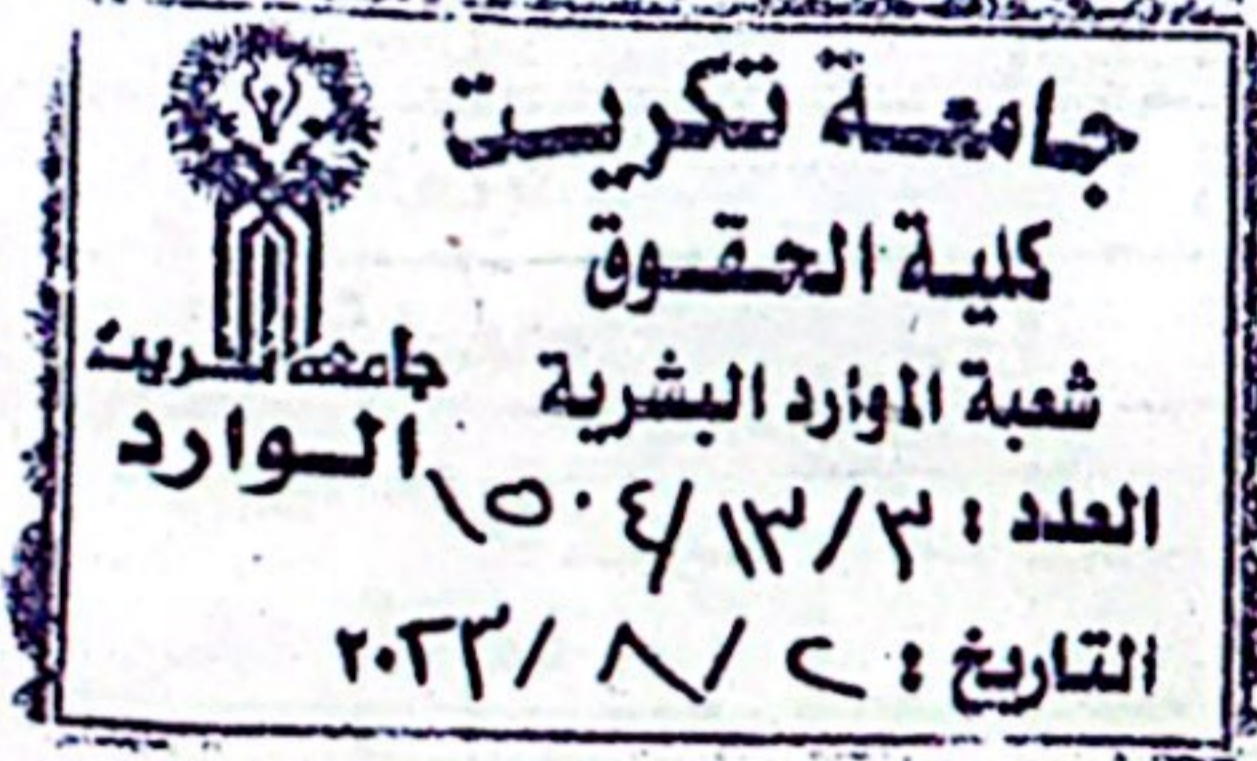 جامعة تكريت
كلية الحقوق
شعبة الموارد البشرية
جامعة تكريت
الوارد
العدد : ٣ / ١٣ / ١٥٠٤
التاريخ : ٢ / ٨ / ٢٠٢٣